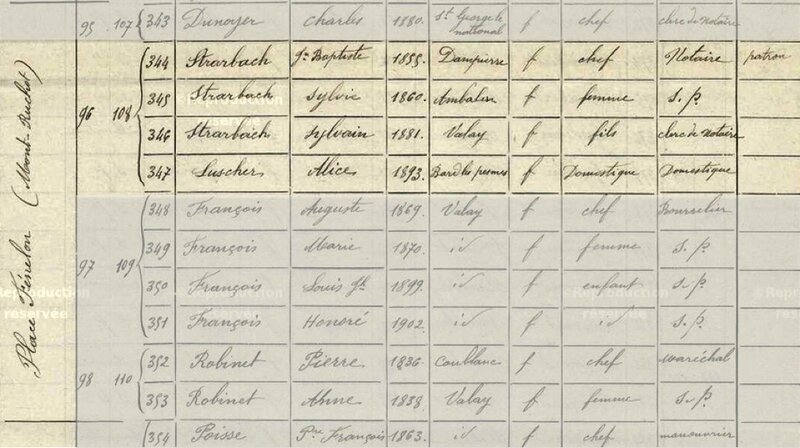 Place Fénelon (Mont-Rachot)
95 107 343 Dunoyer Charles 1880. St George le f chef clerc de Notaire
344 Strarbach Jn Baptiste 1855. Dampierre f chef Notaire patron
96 108 345 Strarbach Sylvie 1860. f femme S. p.
346 Strarbach Sylvain 1881. Valay f fils clerc de Notaire
347 Luscher Alice 1893. Bard les pesmes f Domestique Domestique
348 François Auguste 1869. Valay f chef Bourrelier
349 François Marie 1870. id f femme S. p.
97 109 350 François Louis Jh 1899. id f enfant S. p.
351 François Honoré 1902. id f id S. p.
352 Robinet Pierre 1836. Coublanc f chef Maréchal
98 110 353 Robinet Anne 1838 Valay f femme S. p.
354 Poisse Pre François 1863. id f chef manouvrier
Reproduction réservée
Reproduction réservée